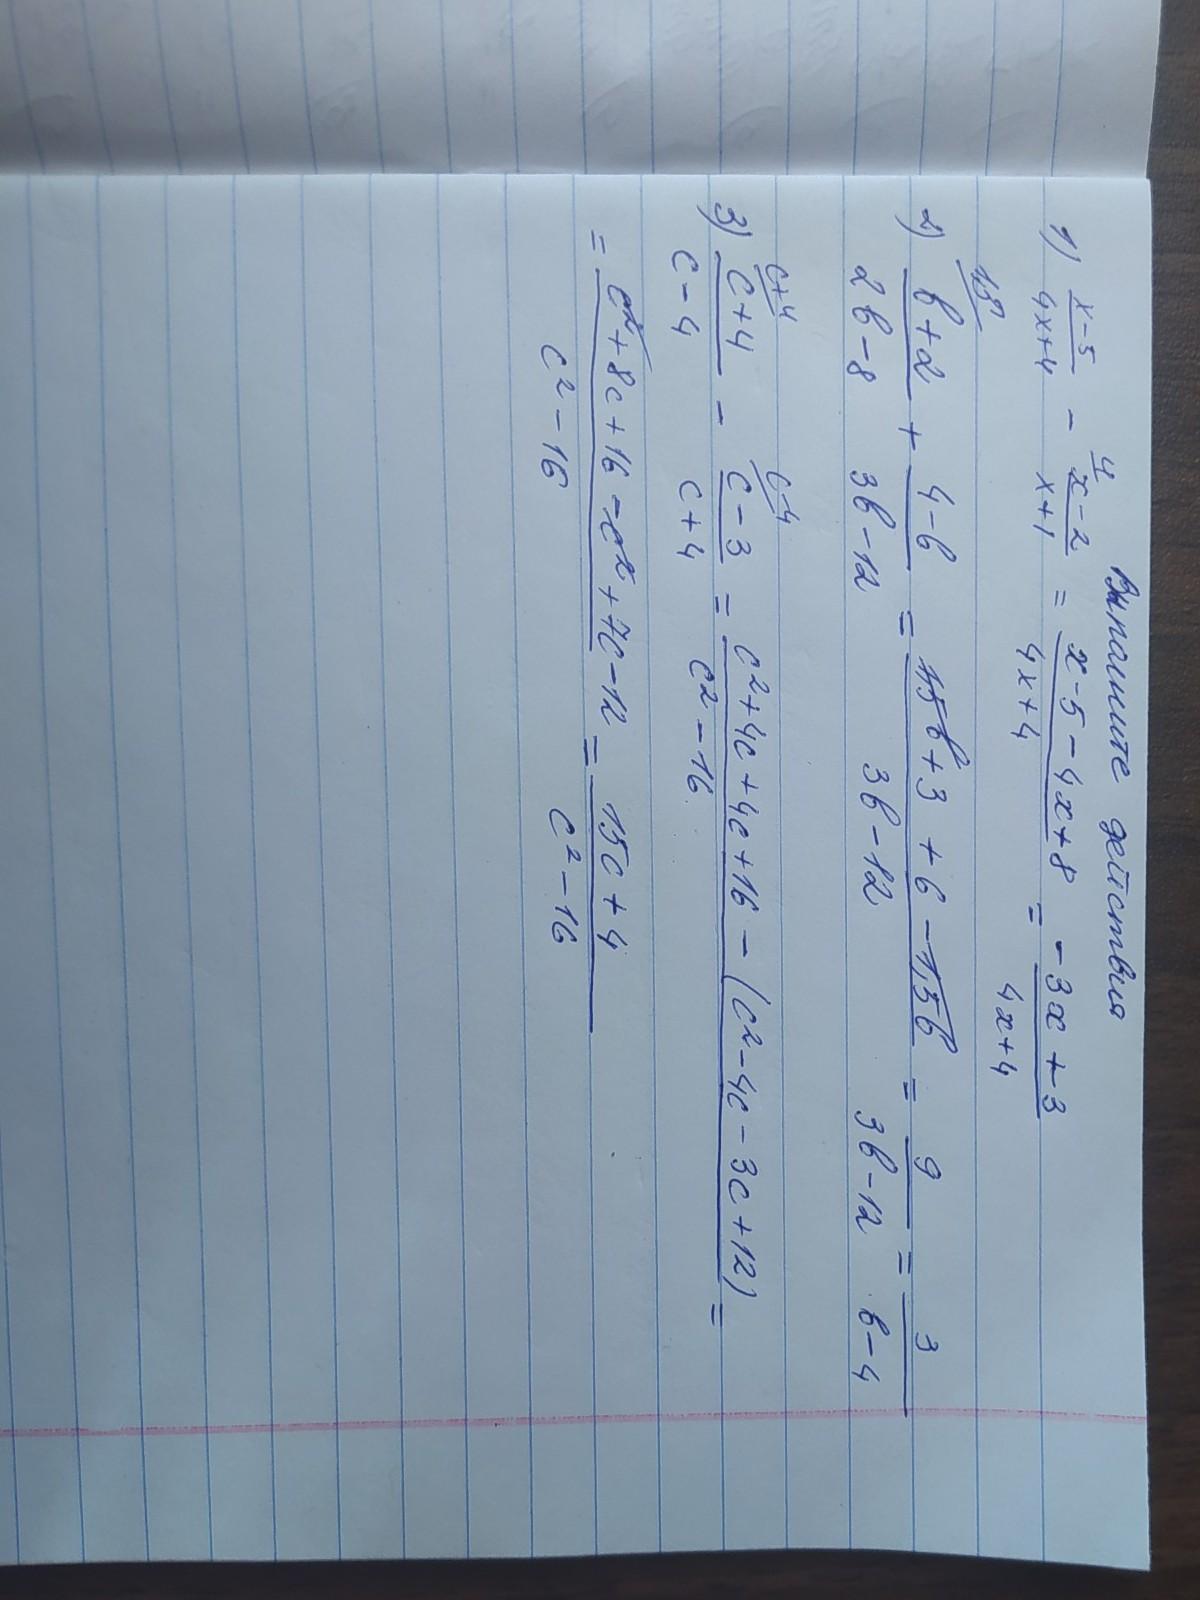 Выполните действия
1) (x-5)/(4x+4) - 4/ (x-2)/(x+1) = (x-5-4x+8)/(4x+4) = (-3x+3)/(4x+4)
2) 1,5/ (b+2)/(2b-8) + (4-b)/(3b-12) = (1,5b+3+6-1,5b)/(3b-12) = 9/(3b-12) = 3/(b-4)
3) c+4/ (c+4)/(c-4) - c-4/ (c-3)/(c+4) = (c²+4c+4c+16-(c²-4c-3c+12))/(c²-16) =
= (c²+8c+16-c²+7c-12)/(c²-16) = (15c+4)/(c²-16)